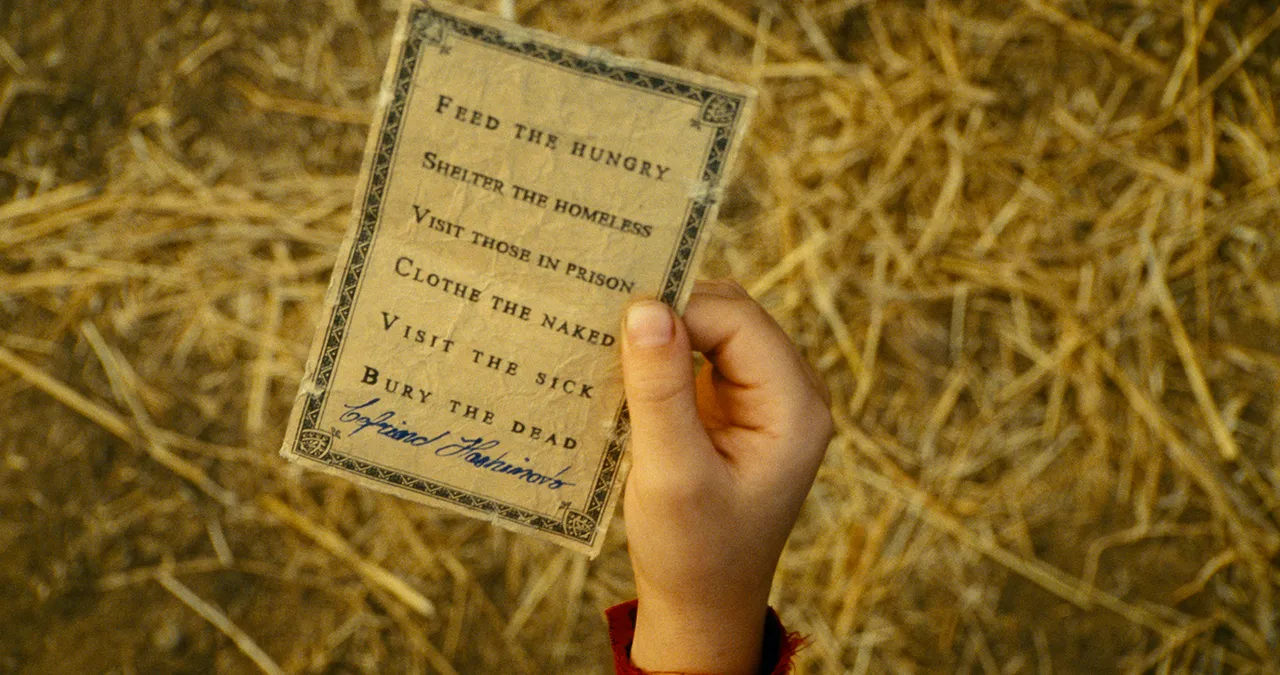 FEED THE HUNGRY
SHELTER THE HOMELESS
VISIT THOSE IN PRISON
CLOTHE THE NAKED
VISIT THE SICK
BURY THE DEAD